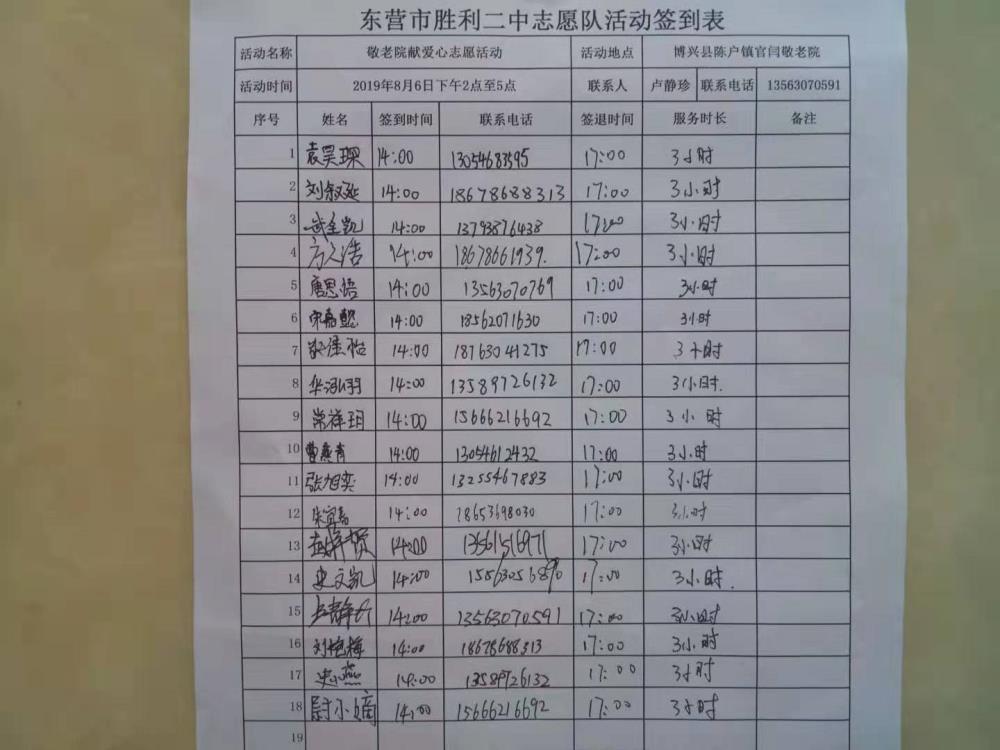 东营市胜利二中志愿队活动签到表
活动名称 敬老院献爱心志愿活动 活动地点 博兴县陈户镇官闫敬老院
活动时间 2019年8月6日下午2点至5点 联系人 卢静珍 联系电话 13563070591
序号 姓名 签到时间 联系电话 签退时间 服务时长 备注
1 袁昊琛 14:00 13054683595 17:00 3小时
2 刘叙延 14:00 18678688313 17:00 3小时
3 武全凯 14:00 13793876438 17:00 3小时
4 方久浩 14:00 18678661939. 17:00 3小时
5 唐思悟 14:00 13563070769 17:00 3小时
6 宋嘉懿 14:00 18562071630 17:00 3小时
7 14:00 18763041275 17:00 3小时
8 华泓羽 14:00 13589726132 17:00 3小时.
9 常祥玥 14:00 15666216692 17:00 3小时
10 曹燕青 14:00 13054612432 17:00 3小时
11 张旭奕 14:00 13255467883 17:00 3小时
12 朱宜嘉 14:00 18653698030 17:00 3小时
13 14:00 13561516971 17:00 3小时
14 史文凯 14:00 15563056890 17:00 3小时.
15 14:00 13563070591 17:00 3小时
16 刘艳梅 14:00 18678688313 17:00 3小时
17 史小燕 14:00 13589726132 17:00 3小时
18 尉小嫡 14:00 15666216692 17:00 3小时
19